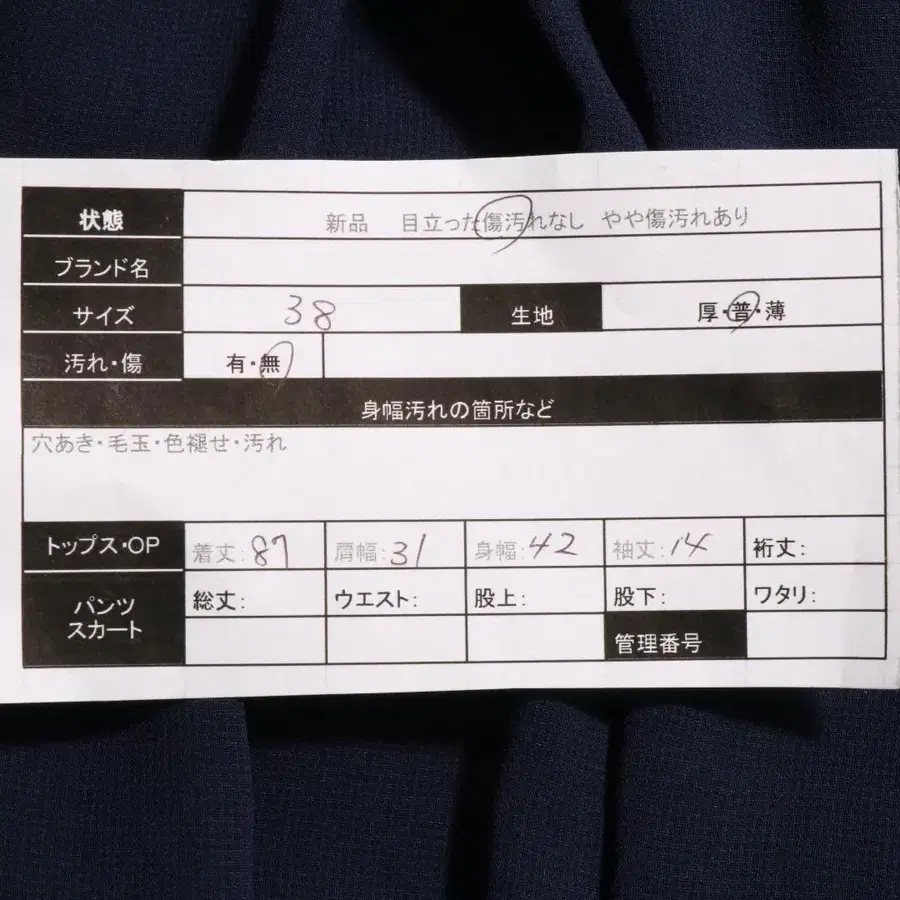 状態 新品 目立った傷汚れなし やや傷汚れあり
ブランド名
サイズ 38 生地 厚・普・薄
汚れ・傷 有・無
身幅汚れの箇所など
穴あき・毛玉・色褪せ・汚れ
トップス・OP 着丈:87 肩幅:31 身幅:42 袖丈:14 裄丈:
パンツ スカート 総丈: ウエスト: 股上: 股下: ワタリ:
管理番号